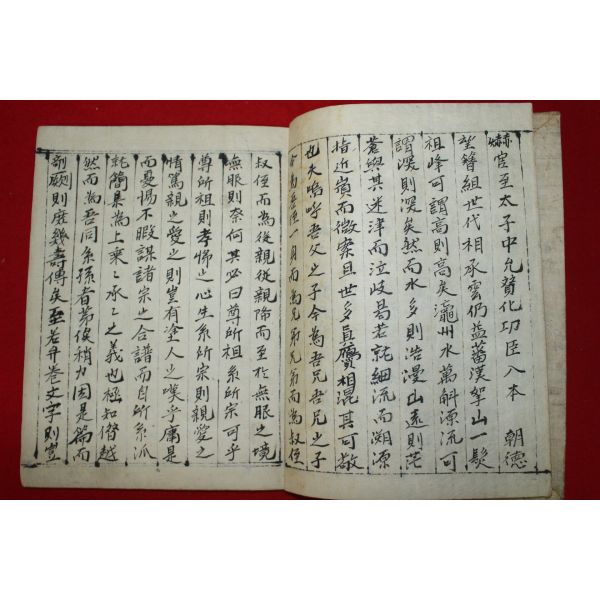 赫官至太子中允贊化功臣入本朝德
望簪組世代相承雲仍益蕃漢拏山一髮
祖峰可謂高則高矣瀛州水萬斛源流可
謂深則深矣然而水多則浩漫山遠則茫
蒼與其迷津而泣歧曷若就細流而溯源
指近嶺而微案且世多眞贗相混其可敬
也夫嗚呼吾父之子今為吾兄吾兄之子
吾侄一身而為兄弟兄弟而為叔侄
叔侄而為從親從親降而至於無服之境
無服則奈何其必曰尊所祖系所宗可乎
尊所祖則孝悌之心生系所宗則親愛之
情篤親之愛之則豈有塗人之嘆乎庸是
而憂惕不暇謀諸宗之合譜而自所系派
就簡具為上乘乘承承之義也極知僭越
然而為吾同系孫者第俟稍力因是篇而
剞劂則庶幾壽傳矣至若弁卷文字則豈